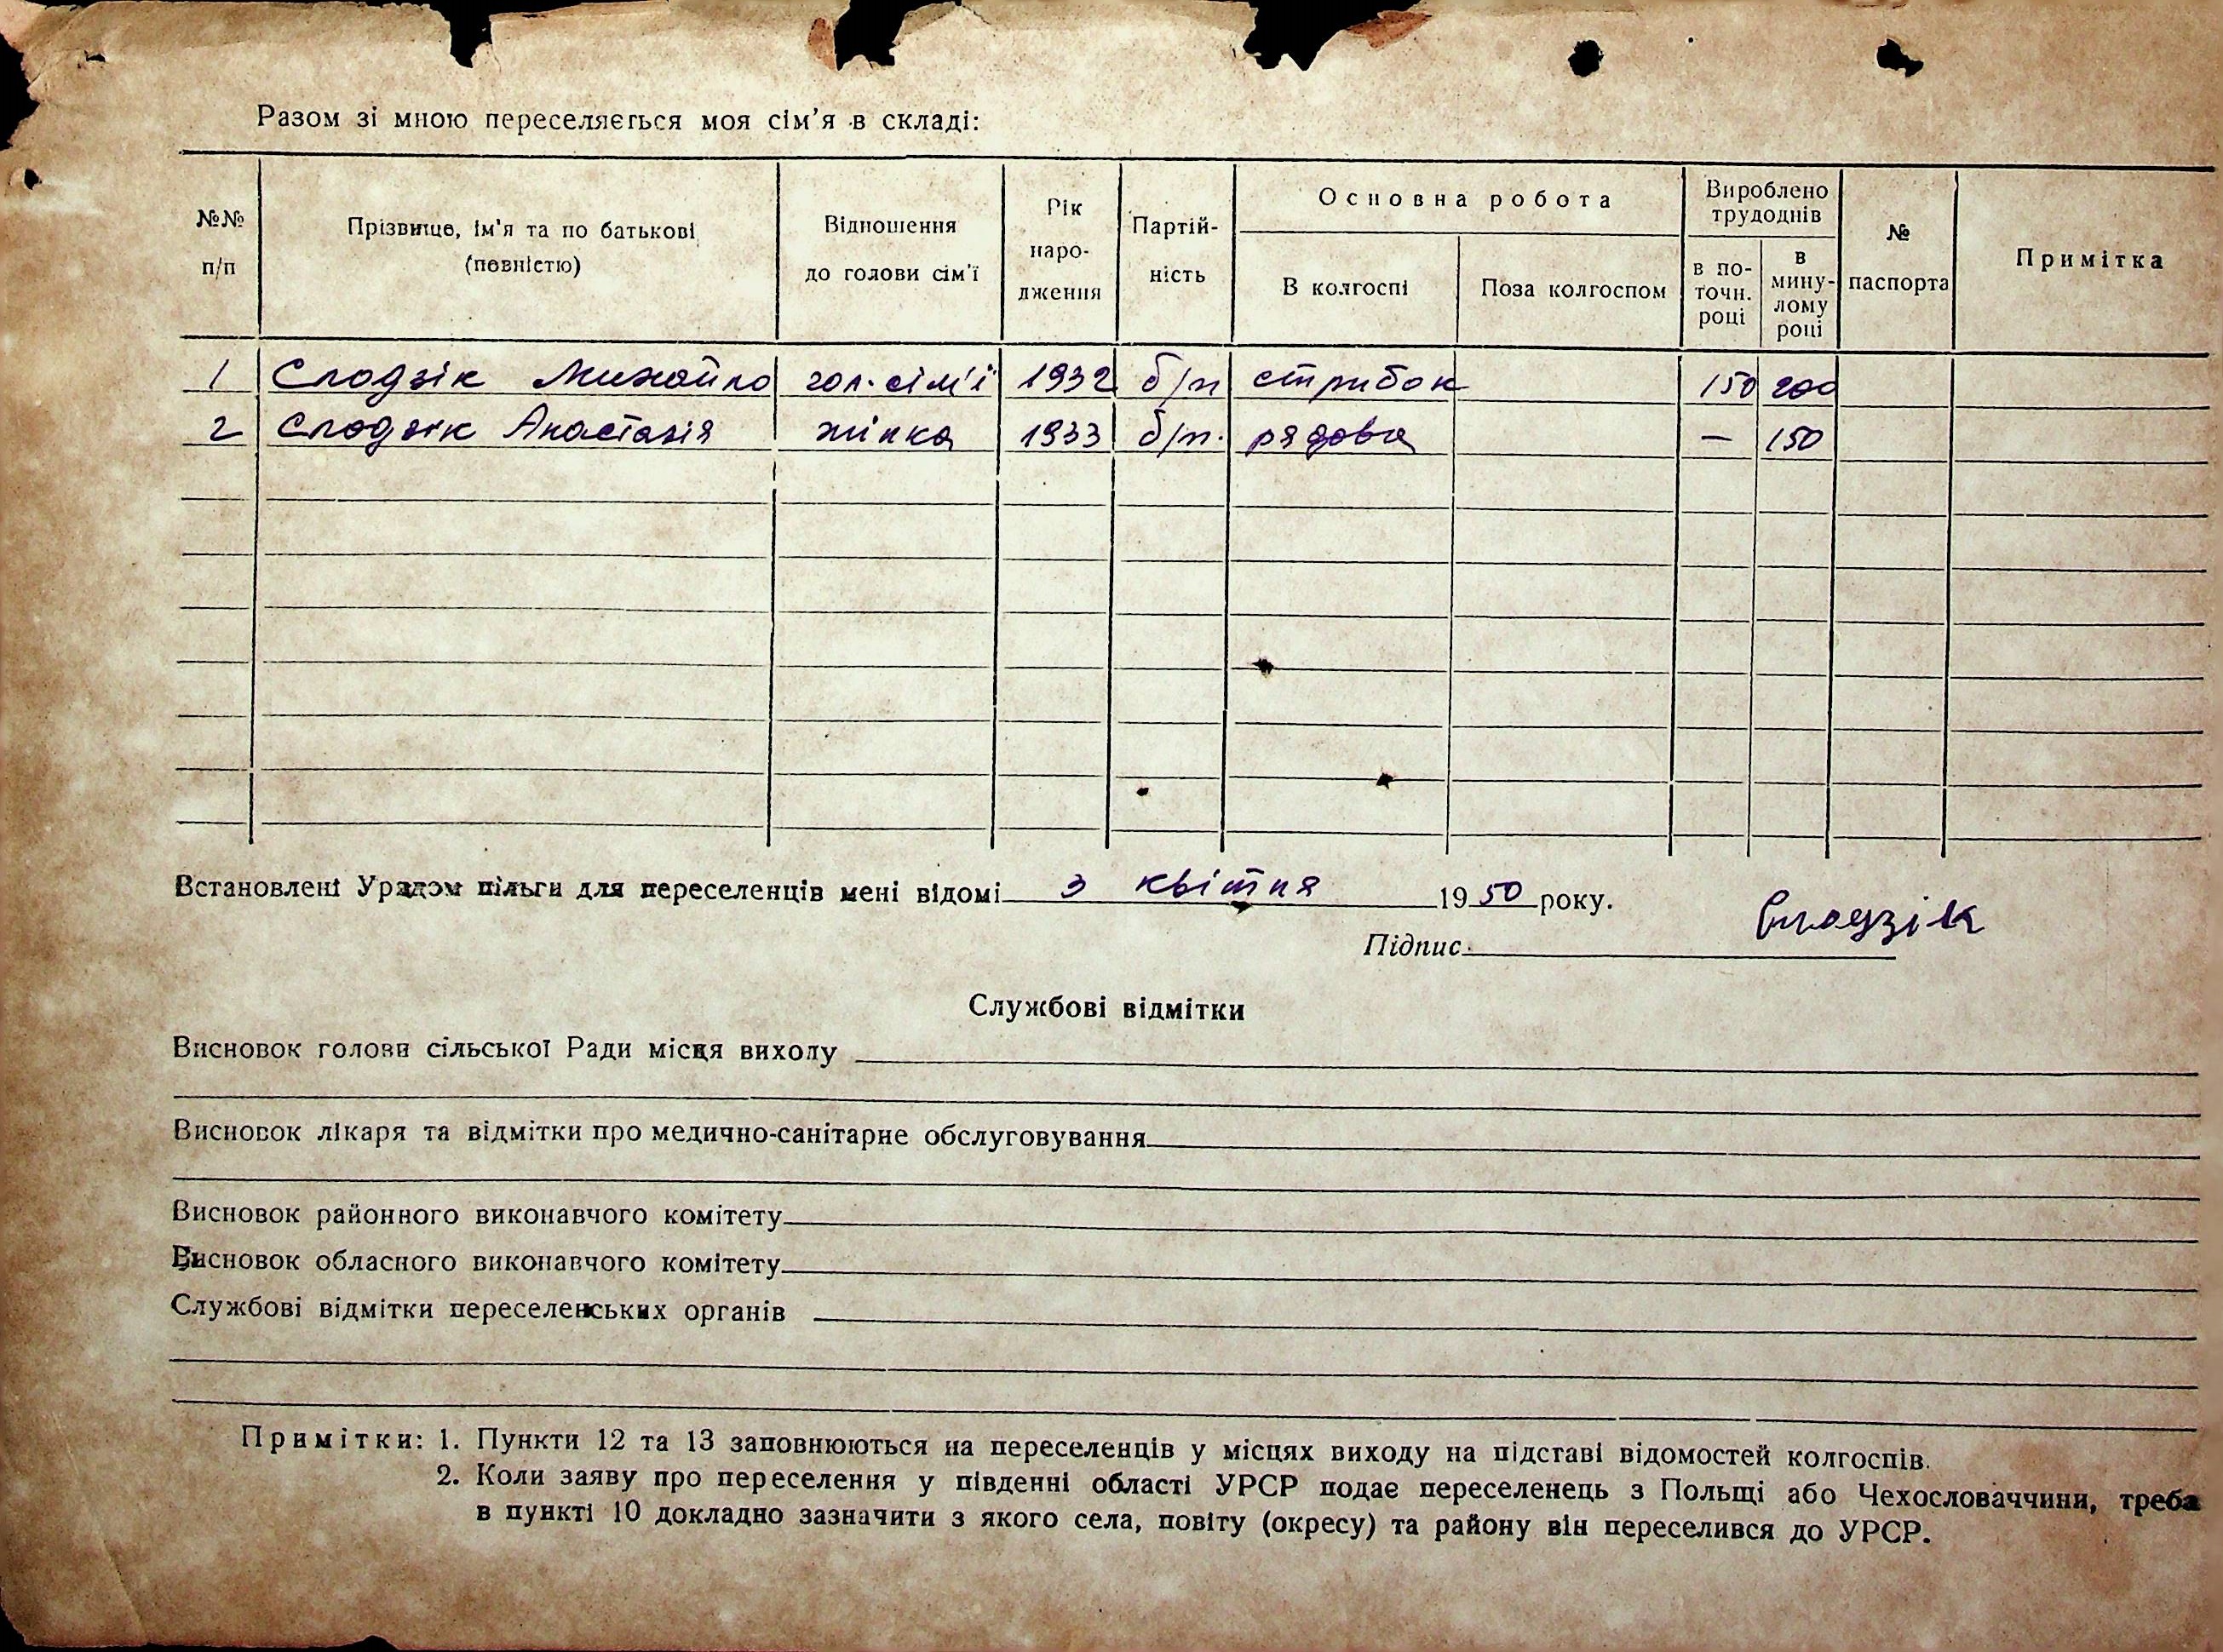 Разом зі мною переселяється моя сім'я в складі:
№№ п/п | Прізвище, ім'я та по батькові (повністю) | Відношення до голови сім'ї | Рік народження | Партійність | Основна робота | Вироблено трудоднів | № паспорта | Примітка
В колгоспі | Поза колгоспом | в поточн. році | в минулому році
1 | Слодзік Михайло | гол. сім'ї | 1932 | б/п | стрибок | | 150 | 200
2 | Слодзік Анастазія | жінка | 1933 | б/п. | рядова | | — | 150
Встановлені Урядом пільги для переселенців мені відомі 3 квітня 1950 року.
Підпис Слодзік
Службові відмітки
Висновок голови сільської Ради місця виходу
Висновок лікаря та відмітки про медично-санітарне обслуговування
Висновок районного виконавчого комітету
Висновок обласного виконавчого комітету
Службові відмітки переселенських органів
Примітки: 1. Пункти 12 та 13 заповнюються на переселенців у місцях виходу на підставі відомостей колгоспів.
2. Коли заяву про переселення у південні області УРСР подає переселенець з Польщі або Чехословаччини, треба
в пункті 10 докладно зазначити з якого села, повіту (окресу) та району він переселився до УРСР.